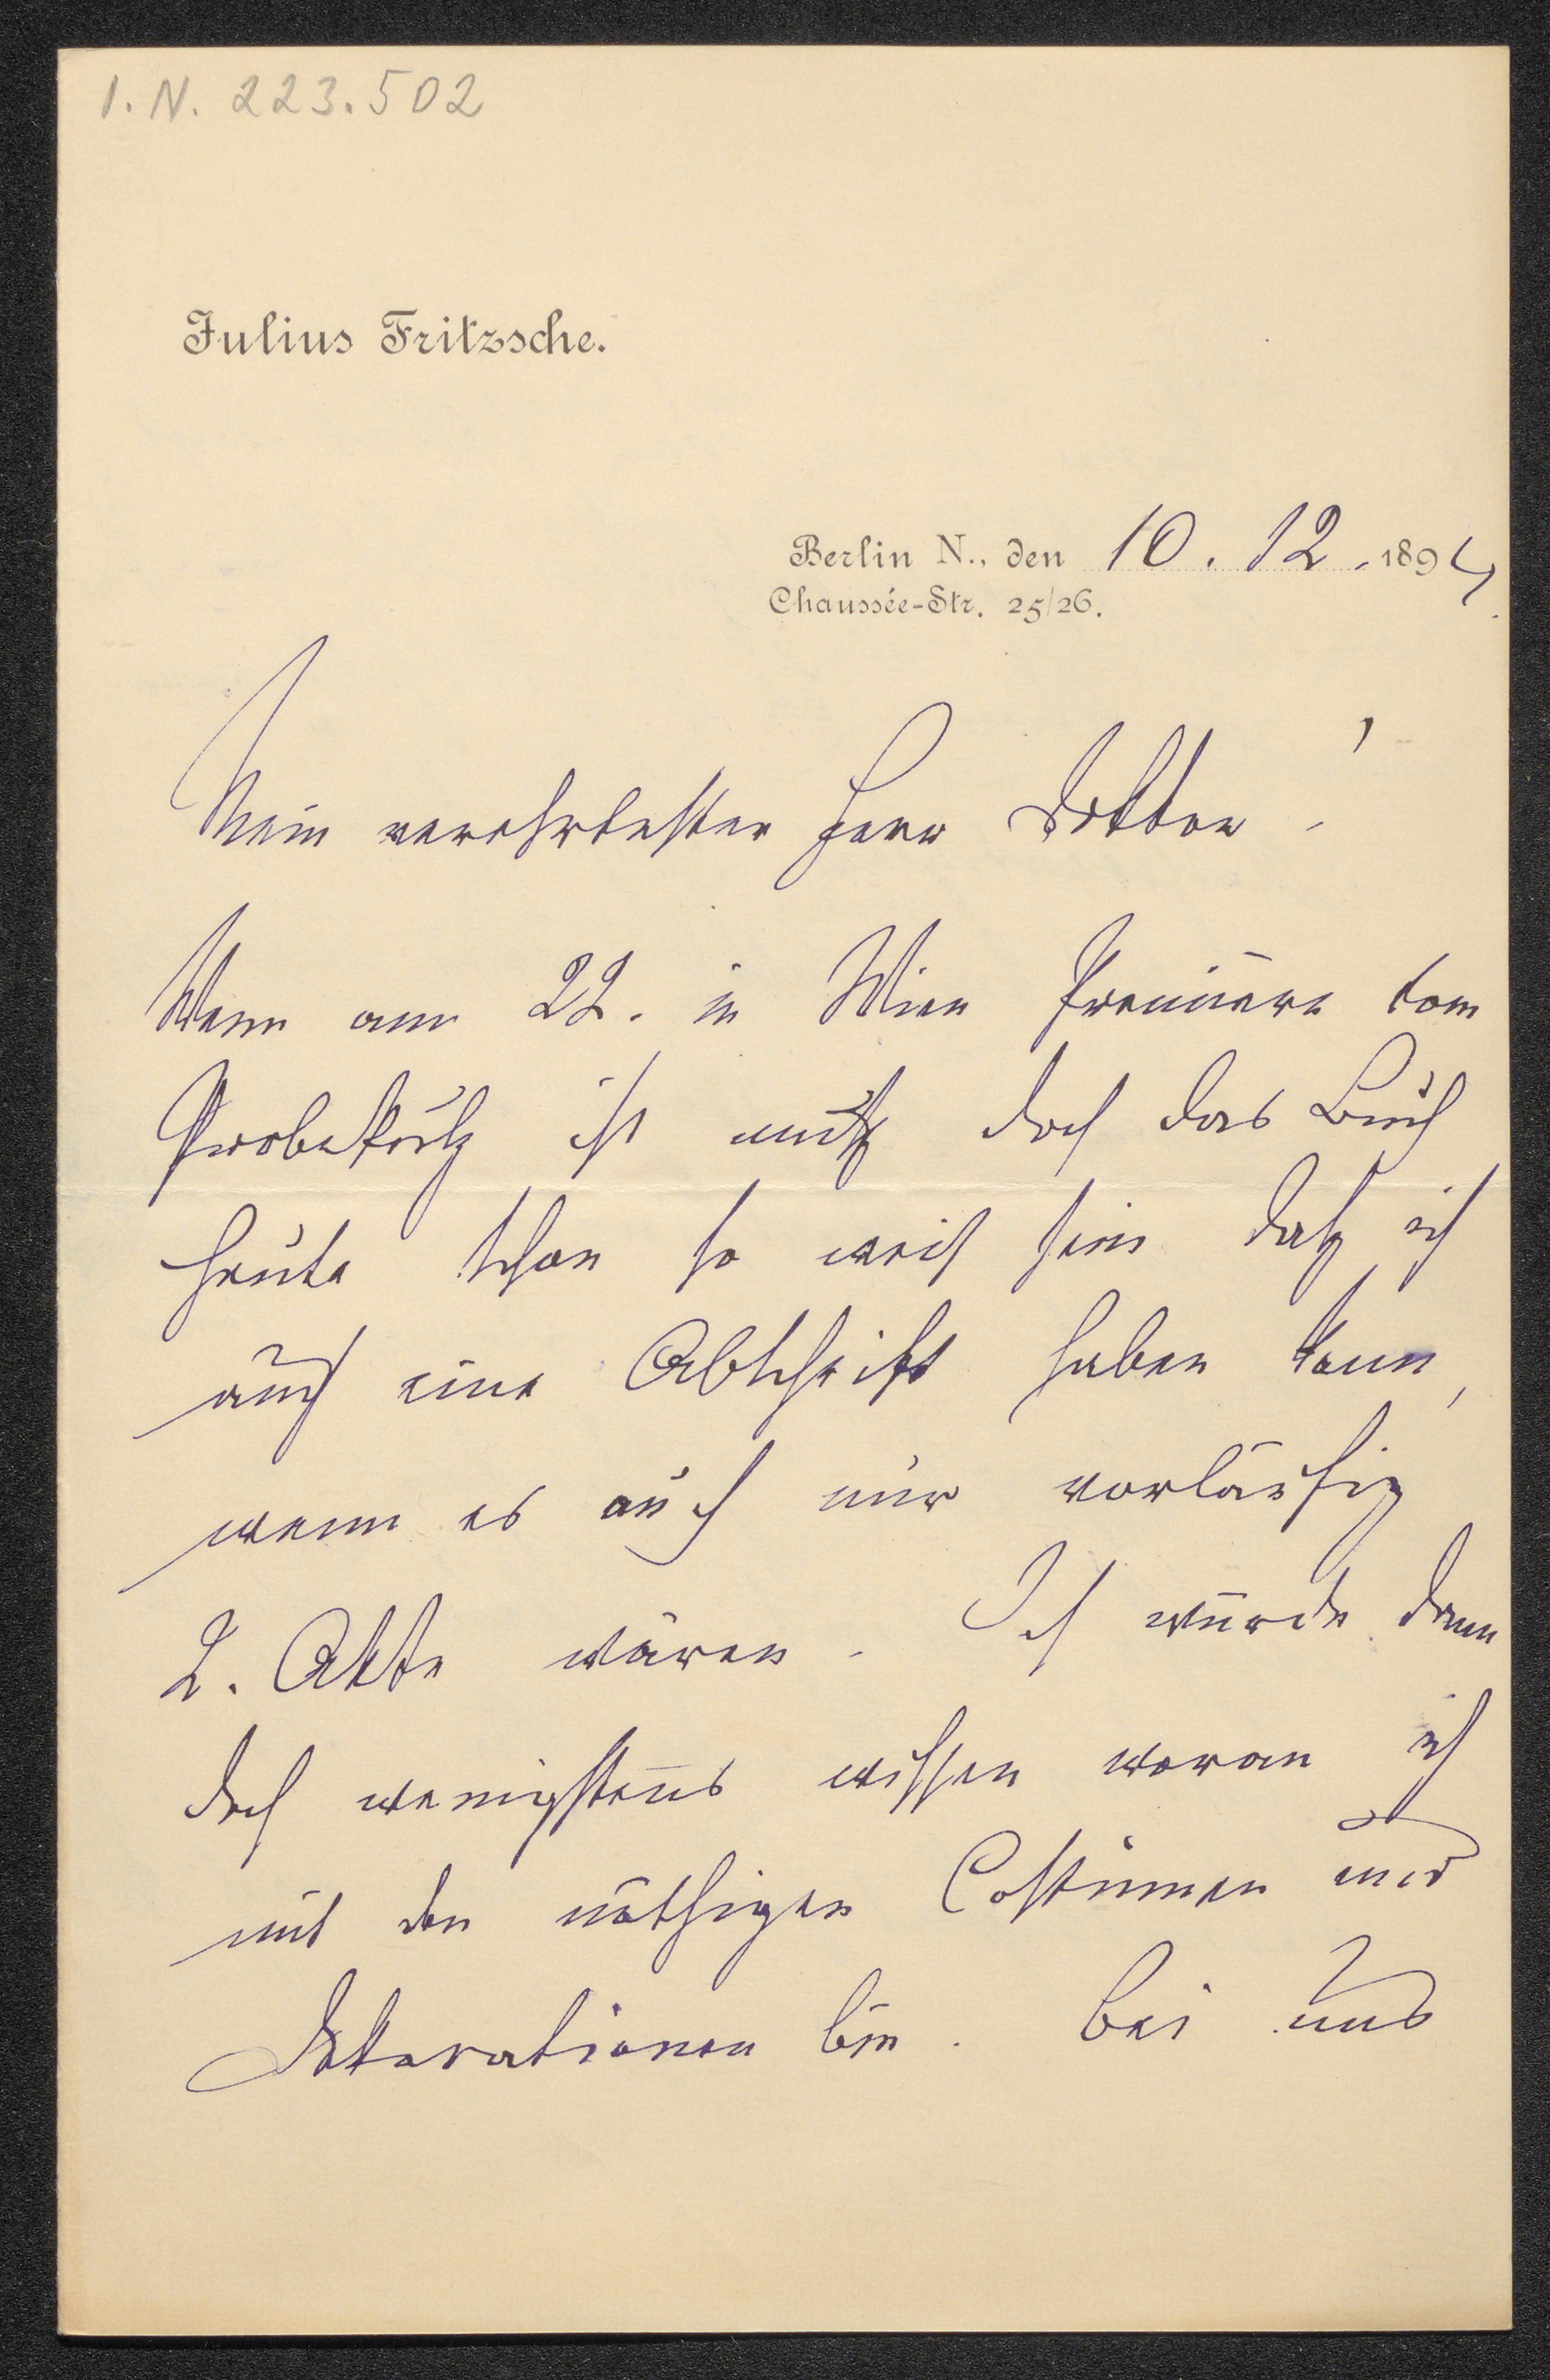 I. N. 223.502
Julius Fritzsche.
Berlin N., den 10. 12. 1894
Chaussée-Str. 25/26.
Mein verehrtester Herr Doktor!
Wenn am 22. in Wien Première vom
Probekuß ist muß doch das Buch
heute schon so weit sein daß ich
auch eine Abschrift haben kann,
wenn es auch nur vorläufig
2. Akte wären. Ich würde dann
doch wenigstens wissen woran ich
mit den nöthigen Costümen und
Dekorationen bin. Bei uns